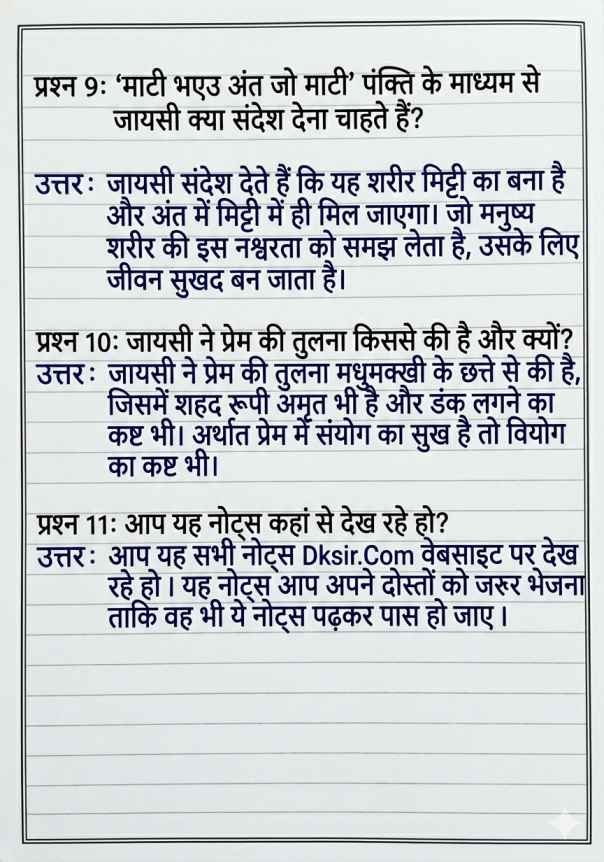 प्रश्न 9: ‘माटी भएउ अंत जो माटी’ पंक्ति के माध्यम से
जायसी क्या संदेश देना चाहते हैं?
उत्तर : जायसी संदेश देते हैं कि यह शरीर मिट्टी का बना है
और अंत में मिट्टी में ही मिल जाएगा। जो मनुष्य
शरीर की इस नश्वरता को समझ लेता है, उसके लिए
जीवन सुखद बन जाता है।
प्रश्न 10: जायसी ने प्रेम की तुलना किससे की है और क्यों?
उत्तर : जायसी ने प्रेम की तुलना मधुमक्खी के छत्ते से की है,
जिसमें शहद रूपी अमृत भी है और डंक लगने का
कष्ट भी। अर्थात प्रेम में संयोग का सुख है तो वियोग
का कष्ट भी।
प्रश्न 11: आप यह नोट्स कहां से देख रहे हो?
उत्तर : आप यह सभी नोट्स Dksir.Com वेबसाइट पर देख
रहे हो । यह नोट्स आप अपने दोस्तों को जरूर भेजना
ताकि वह भी ये नोट्स पढ़कर पास हो जाए ।